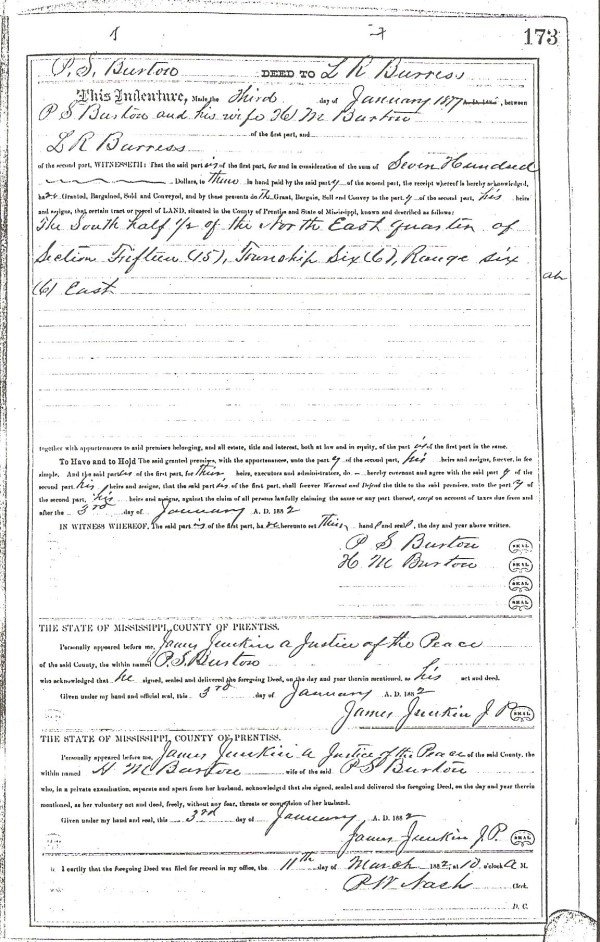 173
P. S. Burton DEED TO L R Burress
This Indenture, Made the Third day of January 1877 A. D. 188 , between
P S Burton and his wife H M Burton
of the first part, and
L R Burress
of the second part, WITNESSETH: That the said parties of the first part, for and in consideration of the sum of Seven Hundred
Dollars, to them in hand paid by the said party of the second part, the receipt whereof is hereby acknowledged,
have Granted, Bargained, Sold and Conveyed, and by these presents do Grant, Bargain, Sell and Convey to the party of the second part, his heirs
and assigns, that certain tract or parcel of LAND, situated in the County of Prentiss and State of Mississippi, known and described as follows:
The South half 1/2 of the North East quarter of
Section Fifteen (15), Township Six (6), Range six
(6) East
together with appurtenances to said premises belonging, and all estate, title and interest, both at law and in equity, of the parties of the first part in the same.
To Have and to Hold The said granted premises, with the appurtenances, unto the party of the second part, his heirs and assigns, forever, in fee
simple. And the said parties of the first part, for their heirs, executors and administrators, do hereby covenant and agree with the said party of the
second part his heirs and assigns, that the said parties of the first part, shall forever Warrant and Defend the title to the said premises, unto the party of
the second part, his heirs and assigns, against the claim of all persons lawfully claiming the same or any part thereof, except on account of taxes due from and
after the 3rd day of January A. D. 1882
IN WITNESS WHEREOF, The said parties of the first part, have hereunto set their hands and seals, the day and year above written.
P S Burton SEAL
H M Burton SEAL
SEAL
SEAL
THE STATE OF MISSISSIPPI, COUNTY OF PRENTISS.
Personally appeared before me, James Junkin a Justice of the Peace
of the said County, the within named P. S. Burton
who acknowledged that he signed, sealed and delivered the foregoing Deed, on the day and year therein mentioned, as his act and deed.
Given under my hand and official seal, this 3rd day of January A. D. 1882
James Junkin J. P. SEAL
THE STATE OF MISSISSIPPI, COUNTY OF PRENTISS.
Personally appeared before me, James Junkin a Justice of the Peace of the said County, the
within named H M Burton wife of the said P S Burton
who, in a private examination, separate and apart from her husband, acknowledged that she signed, sealed and delivered the foregoing Deed, on the day and year therein
mentioned, as her voluntary act and deed, freely, without any fear, threats or compulsion of her husband.
Given under my hand and seal, this 3rd day of January A. D. 1882
James Junkin J. P. SEAL
I certify that the foregoing Deed was filed for record in my office, the 11th day of March 1882, at 10 o'clock A M.
P W Nash Clerk.
D. C.